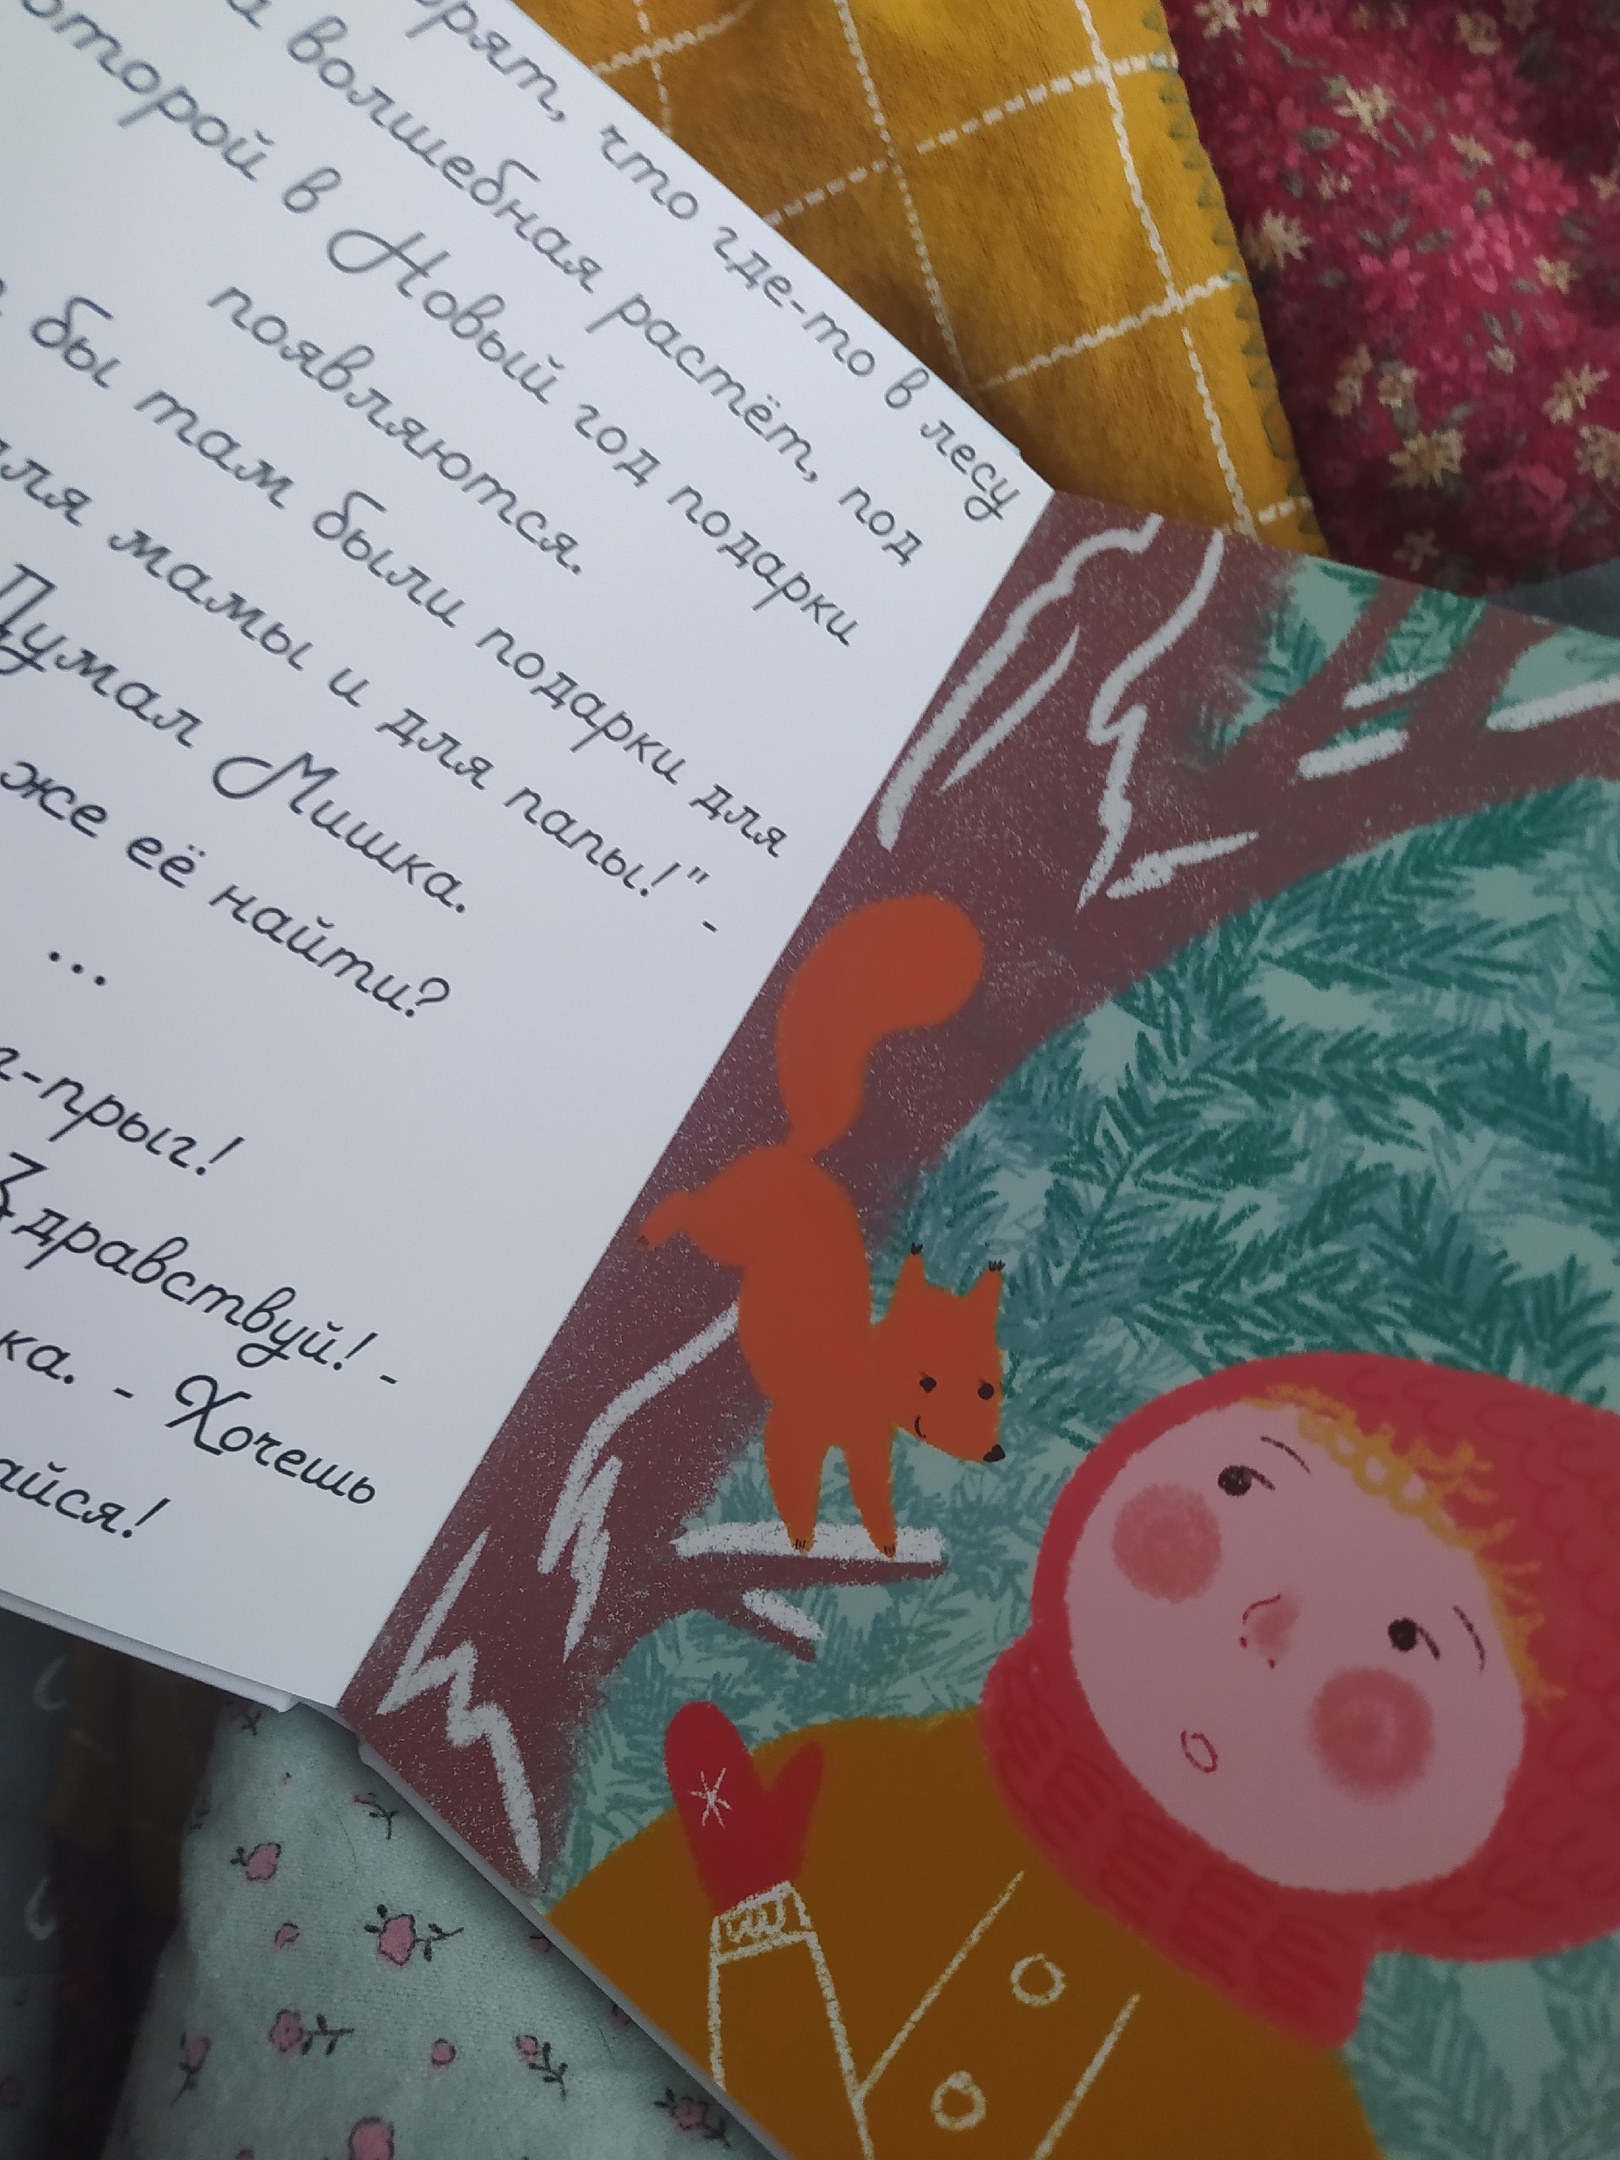 что где-то в лесу
волшебная растёт, под
в Новый год подарки
появляются.
бы там были подарки для
мамы и для папы!" -
Думал Мишка.
же её найти?
...
-прыг!
Здравствуй! -
- Хочешь